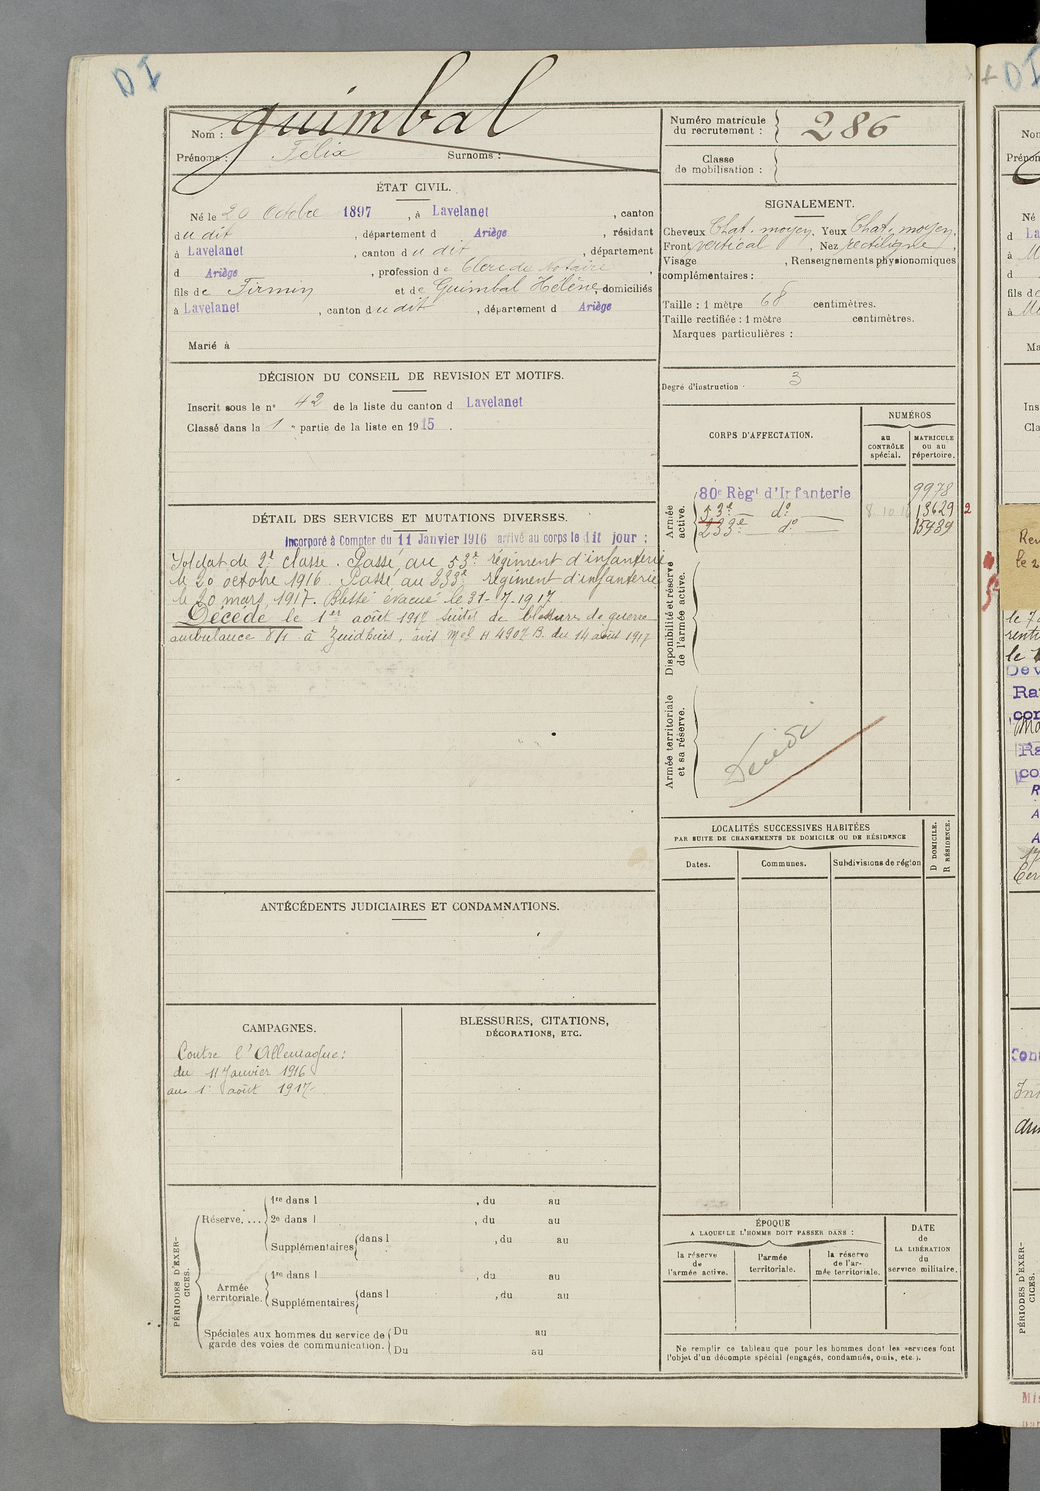 Nom : Guimbal
Prénoms : Félix Surnoms :
Numéro matricule du recrutement : 286
Classe de mobilisation :
ÉTAT CIVIL.
Né le 20 Octobre 1897, à Lavelanet, canton
dudit, département d Ariège, résidant
à Lavelanet, canton dudit, département
d Ariège, profession de Clerc de Notaire,
fils de Firmin et de Guimbal Hélène, domiciliés
à Lavelanet, canton dudit, département d Ariège
Marié à
SIGNALEMENT.
Cheveux Chat. moyen, Yeux Chat. moyen,
Front vertical, Nez rectiligne,
Visage , Renseignements physionomiques
complémentaires :
Taille : 1 mètre 68 centimètres.
Taille rectifiée : 1 mètre centimètres.
Marques particulières :
Degré d'instruction : 3
DÉCISION DU CONSEIL DE REVISION ET MOTIFS.
Inscrit sous le n° 42 de la liste du canton d Lavelanet
Classé dans la 1e partie de la liste en 1915.
CORPS D'AFFECTATION.
NUMÉROS
au CONTRÔLE spécial.
MATRICULE ou au répertoire.
Armée active.
80e Règt d'Infanterie 9978
53e do 13629 2
233e do 15989
Disponibilité et réserve de l'armée active.
Armée territoriale et sa réserve.
DÉTAIL DES SERVICES ET MUTATIONS DIVERSES.
Incorporé à Compter du 11 Janvier 1916 arrivé au corps le dit jour :
Soldat de 2e classe. Passé au 53e régiment d'infanterie
le 20 octobre 1916. Passé au 233e régiment d'infanterie
le 20 mars 1917. Blessé évacué le 31-7-1917
Décédé le 1er août 1917 suite de blessures de guerre
ambulance 8/1 à Zuidhuis, avis Mel H 4907 B. du 14 août 1917
LOCALITÉS SUCCESSIVES HABITÉES
PAR SUITE DE CHANGEMENTS DE DOMICILE OU DE RÉSIDENCE
Dates.
Communes.
Subdivisions de région
D DOMICILE.
R RÉSIDENCE.
ANTÉCÉDENTS JUDICIAIRES ET CONDAMNATIONS.
CAMPAGNES.
Contre l'Allemagne :
du 11 Janvier 1916
au 1er août 1917
BLESSURES, CITATIONS,
DÉCORATIONS, ETC.
PÉRIODES D'EXERCICES.
Réserve....
1re dans l , du au
2e dans l , du au
Supplémentaires dans l , du au
au
Armée territoriale.
1re dans l , du au
Supplémentaires dans l , du au
Spéciales aux hommes du service de garde des voies de communication.
Du au
Du au
ÉPOQUE
A LAQUELLE L'HOMME DOIT PASSER DANS :
la réserve de l'armée active.
l'armée territoriale.
la réserve de l'armée territoriale.
DATE de LA LIBÉRATION du service militaire.
Ne remplir ce tableau que pour les hommes dont les services font
l'objet d'un décompte spécial (engagés, condamnés, omis, etc.).